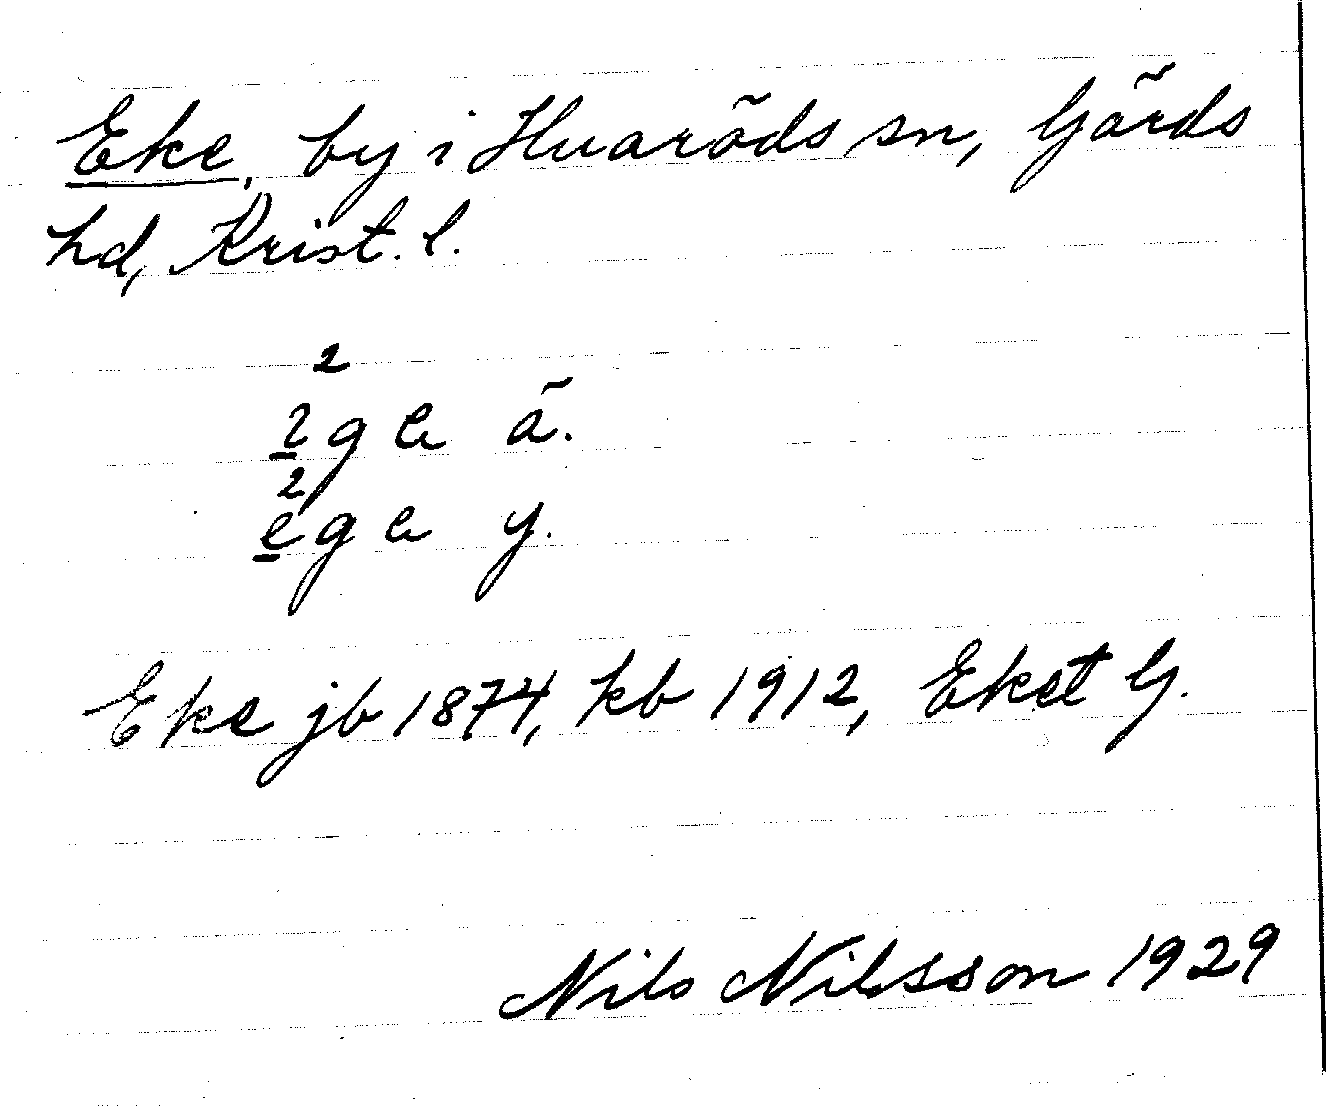 Eke, by i Huaröds sn, Gärds
hd, Krist. l.
2
ɩge ä.
2
ege y.
Eke jb 1874, kb 1912, Eket G.
Nils Nilsson 1929